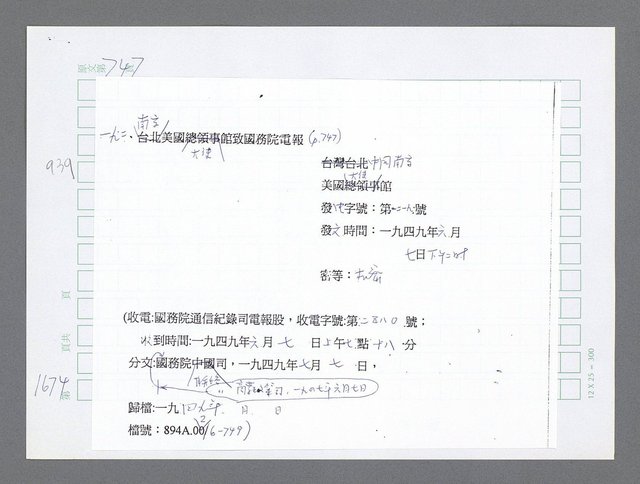 原文第747頁
南京
一九二、台北美國總領事館致國務院電報 (p.747)
大使
939
台灣台北 中国南京
大使
美國總領事館
發文字號：第 號
發文時間：一九四九年六月
七日下午二时
密等：
頁
(收電:國務院通信紀錄司電報股，收電字號:第二五八〇號；
收到時間:一九四九年六月七日上午七點十八分
頁共
分文:國務院中國司，一九四九年六月七日，
1674
第
歸檔:一九四九年 月 日
檔號：894A.00/6-749)
12 X 25 = 300